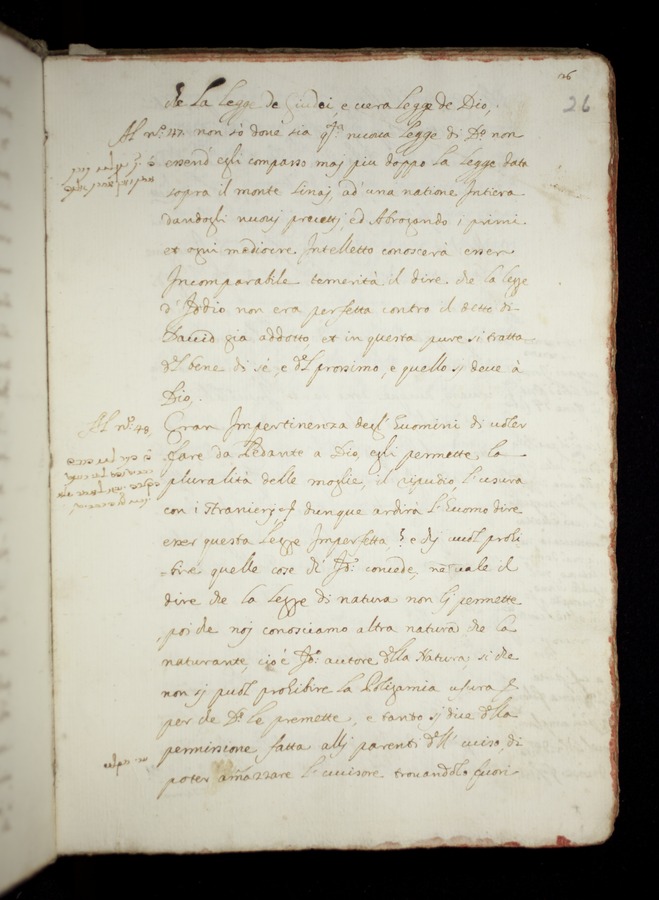 26
26
che La Legge de Giudei, e vera Legge de Dio,
Al n.º 47. non sò dove sia q.sta nuova Legge di D.º non
essend' egli comparso maj piu doppo La Legge data
sopra il monte Sinaj, ad una natione Intiera
dandogli nuovj precettj, ed Abrogando i primi
et ogni mediocre Intelletto conoscerà esser
Incomparabile temerità il dire che la legge
d' Iddio non era perfetta contro il detto di
David gia addotto, et in questa pure si tratta
del bene di sè, e del prossimo, e quello sj deve à
Dio,
Al n.º 48,
Gran Impertinenza degl' huomini di voler
fare da Pedante a Dio, egli permette la
pluralità delle moglie, il ripudio, l' usura
con i stranierj, e dunque ardirà l' huomo dire
esser questa Legge Imperfetta, e sij vuol prohi
-bire quelle cose ch' Id.º concede, ne vale il
dire che la Legge di natura non lj permette
poi che noj conosciamo altra natura che la
naturante, cioè Id.º autore della Natura, si che
non sj puol prohibire la Poligamia usura
per che D.º le premette, e tanto sj dice della
permissione fatta allj parenti dell' ucciso, di
poter amazzare l' uccisore trovandolo fuori